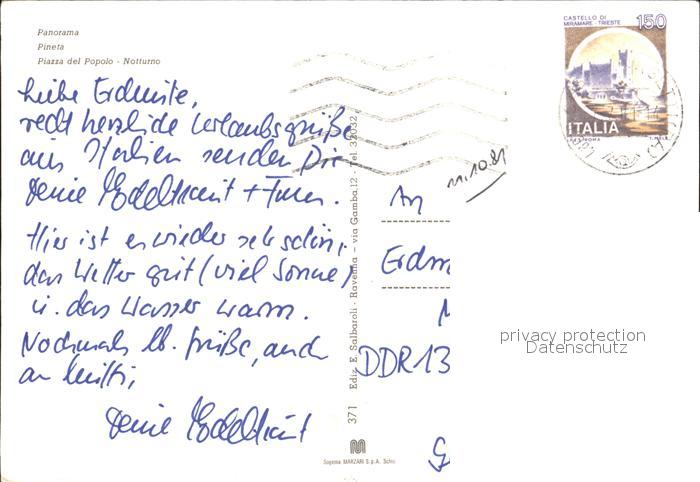 Panorama
Pineta
Piazza del Popolo - Notturno
CASTELLO DI
MIRAMARE - TRIESTE
150
ITALIA
Liebe Erdmute,
recht herzliche Urlaubsgrüße
aus Italien senden Dir
Deine Edeltraut +
Hier ist es wieder sehr schön,
das Wetter gut (viel Sonne)
u. das Wasser warm.
Nochmals lb. Grüße, auch
an
Deine Edeltraut
371 Ediz. E. Salbaroli - Ravenna - via Gamba,12 - Tel. 32032
Sogema MARZARI S.p.A. Schio
11.10.81
An
Erdm
DDR 13
G
privacy protection
Datenschutz